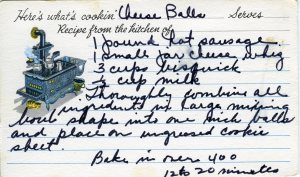 Here's what's cookin' Cheese Balls Serves
Recipe from the kitchen of
1 pound hot sausage
1 small jar cheese whiz
3 cups bisquick
¼ cup milk
Thoroughly combine all
ingredients in large mixing
bowl shape into one inch balls
and place on ungreased cookie
sheet.
Bake in oven 400
12 to 20 minutes